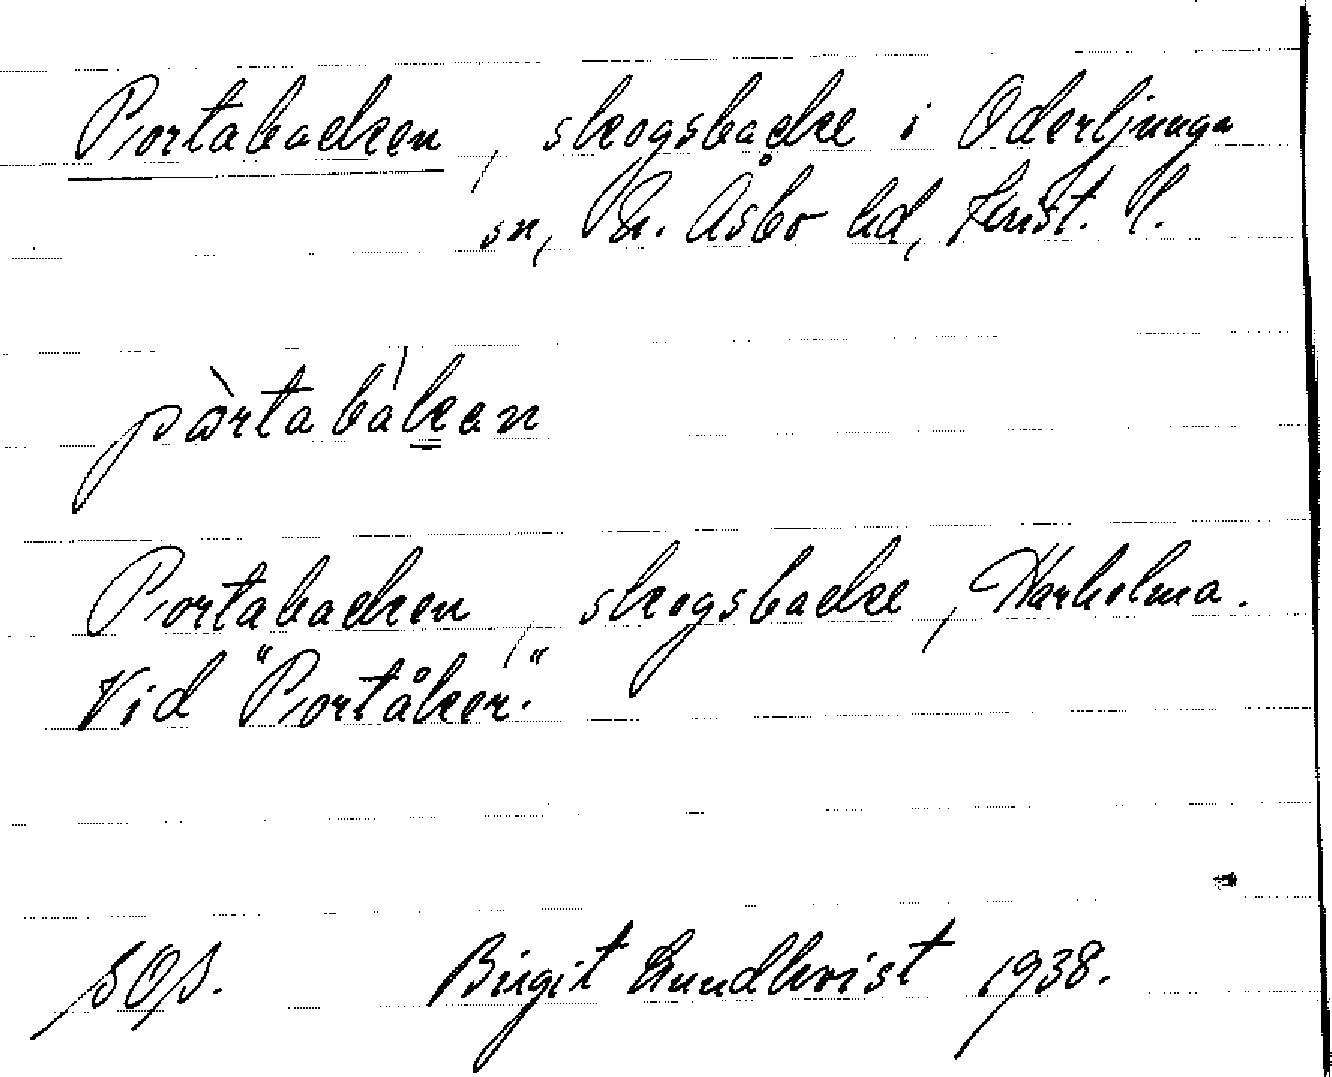 Portabacken, skogsbacke i Oderljunga
sn, N. Åsbo hd, Krist. l.
pòrtabàkan
Portabacken, skogsbacke, Harholma.
Vid "Portåker."
SOS. Birgit Lundkvist 1938.